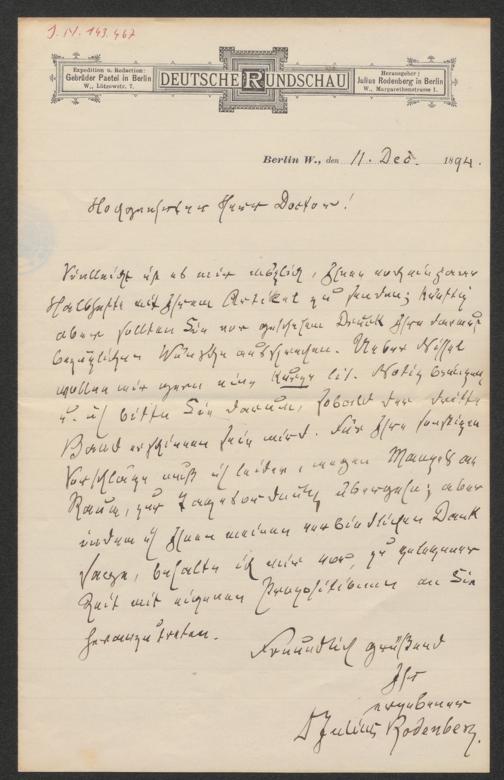 J. N. 143.467
Expedition u. Redaction:
Gebrüder Paetel in Berlin
W., Lützowstr. 7.
DEUTSCHE RUNDSCHAU
Herausgeber:
Julius Rodenberg in Berlin
W., Margarethenstrasse 1.
Berlin W., den 11. Dec. 1894.
Hochgeehrter Herr Doctor!
Vielleicht ist es mir möglich, Ihnen noch ein paar
Halbhefte mit Ihrem Artikel zu senden; künftig
aber sollten Sie vor geschehenem Druck Ihre darauf
bezüglichen Wünsche aussprechen. Ueber
wollen wir gern eine kurze lit. Notiz bringen
u. ich bitte Sie darum, sobald der dritte
Band erschienen sein wird. Für Ihre sonstigen
Vorschläge muß ich leider, wegen Mangels an
Raum, zur Tagesordnung übergehen; aber
indem ich Ihnen meinen verbindlichen Dank
sage, behalte ich mir vor, zu gelegener
Zeit mit eigenen Propositionen an Sie
heranzutreten.
Freundlich grüßend
Ihr
ergebener
Dr Julius Rodenberg.